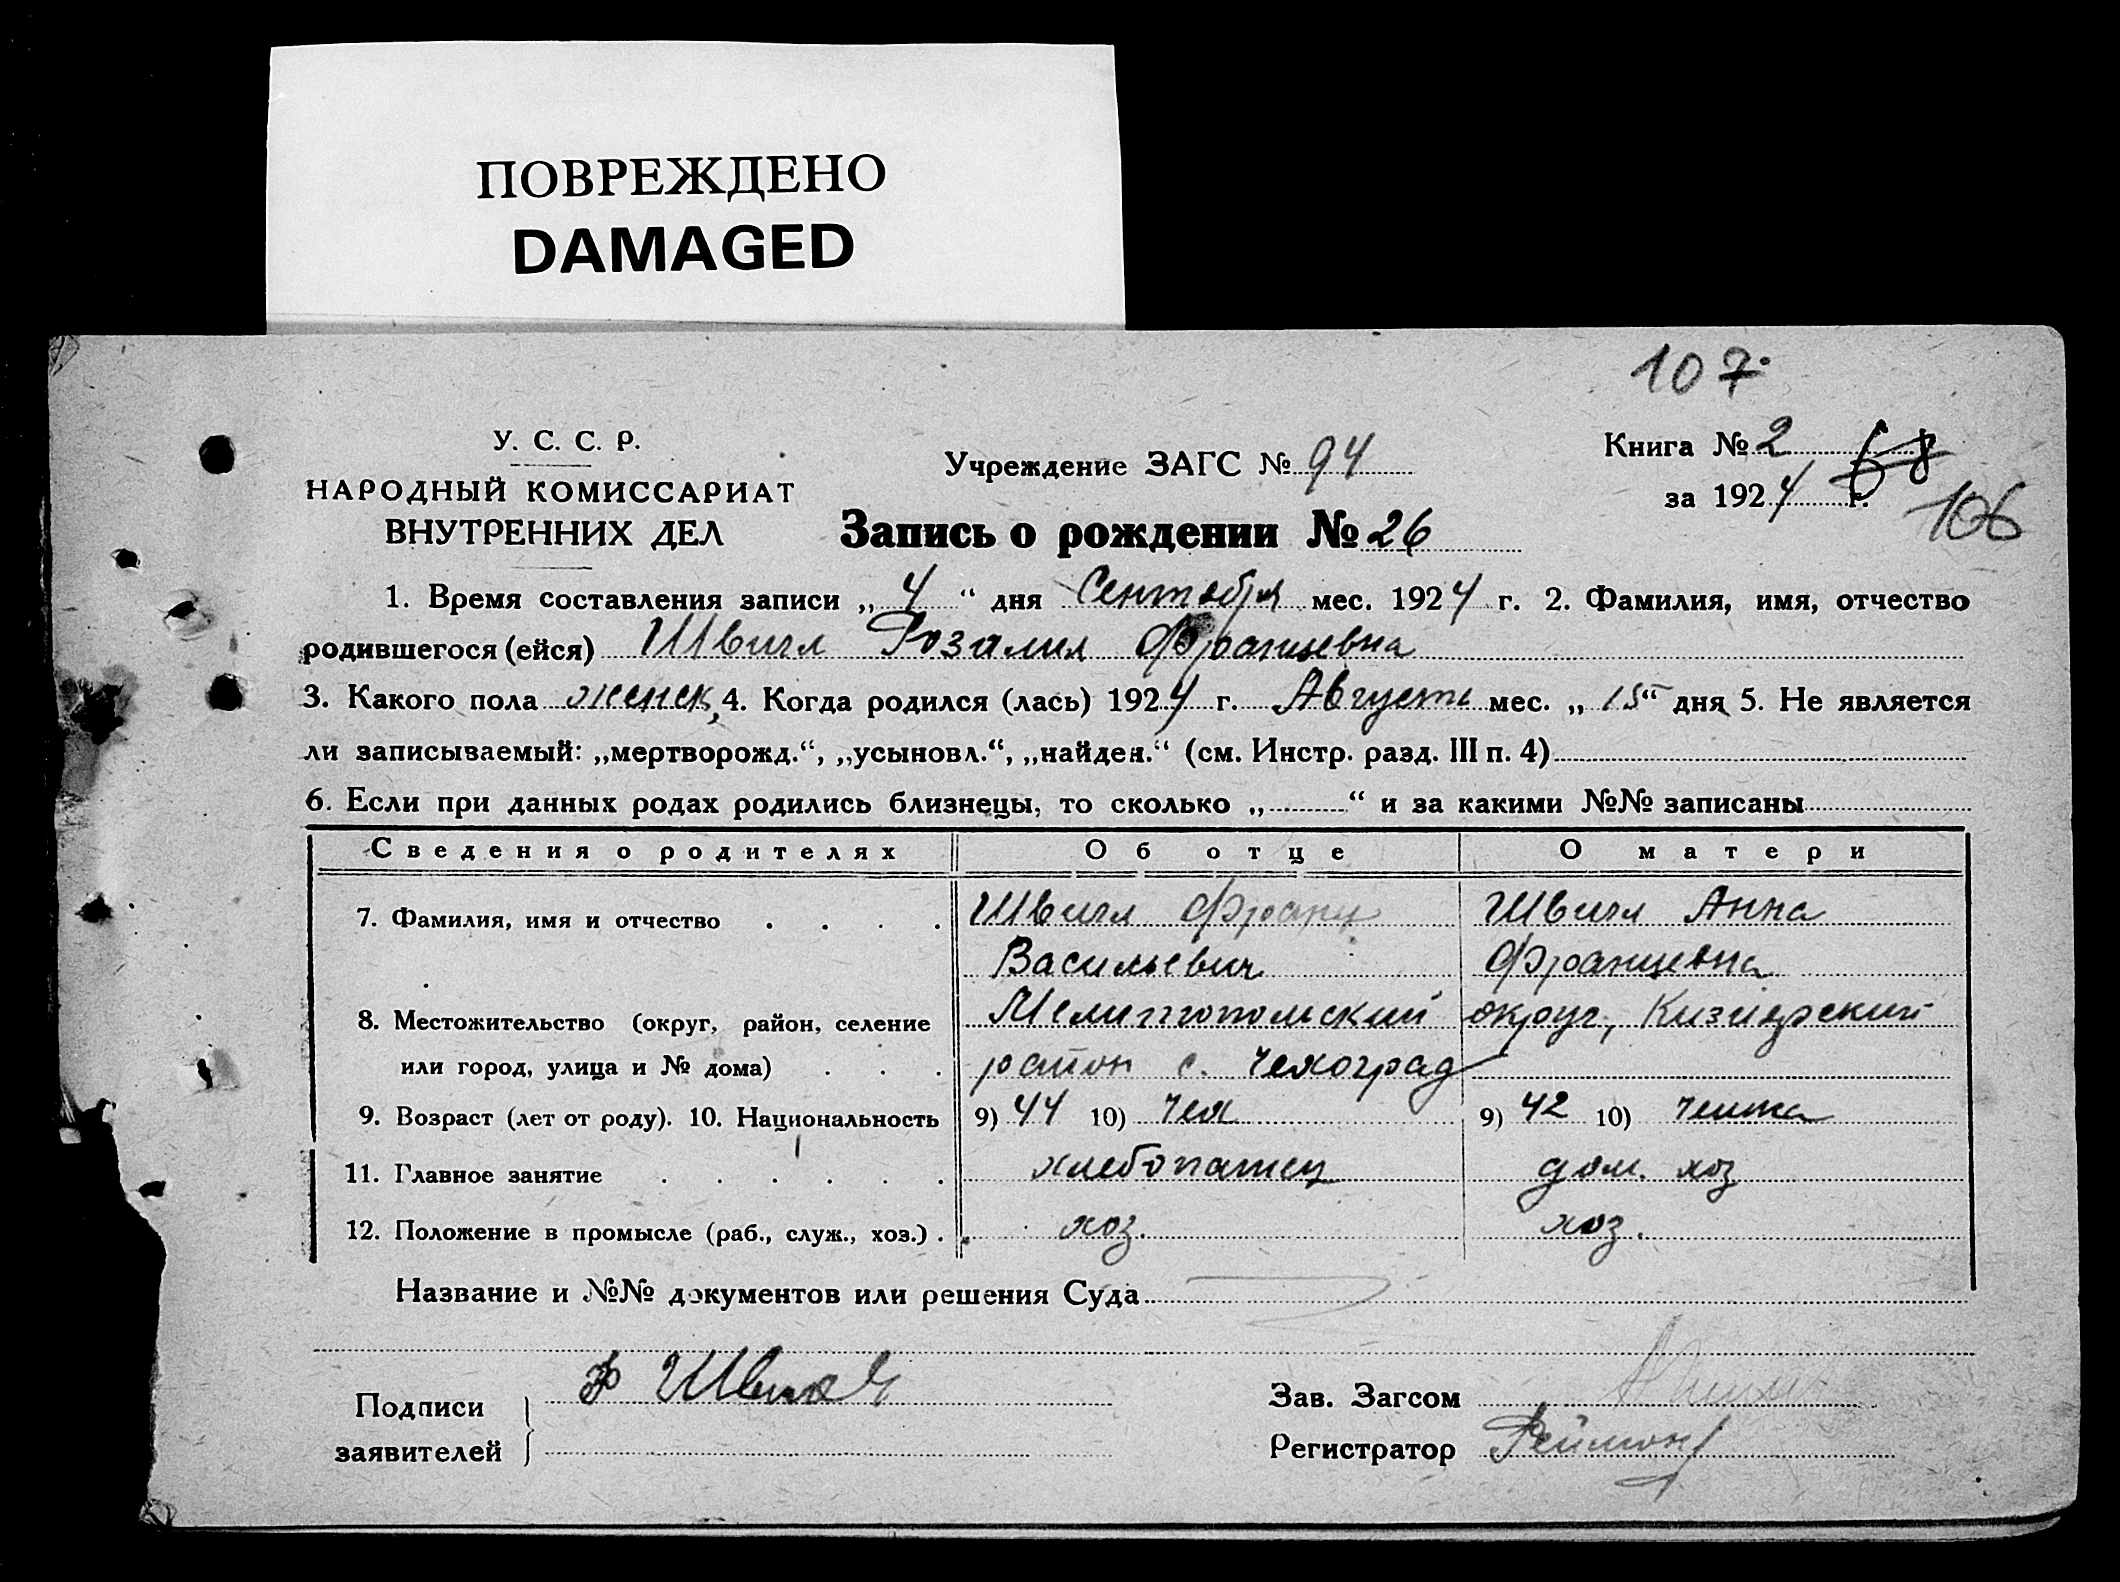 ПОВРЕЖДЕНО
DAMAGED
107
У. С. С. Р.
НАРОДНЫЙ КОМИССАРИАТ
ВНУТРЕННИХ ДЕЛ
Учреждение ЗАГС № 94
Книга № 2 68
за 1924 г.
106
Запись о рождении № 26
1. Время составления записи „ 4 “ дня Сентября мес. 1924 г. 2. Фамилия, имя, отчество
родившегося (ейся) Швигл Розалия Францевна
3. Какого пола женск, 4. Когда родился (лась) 1924 г. Августа мес. „ 15 “ дня 5. Не является
ли записываемый: „мертворожд.“, „усыновл.“, „найден.“ (см. Инстр. разд. III п. 4)
6. Если при данных родах родились близнецы, то сколько „ “ и за какими №№ записаны
Сведения о родителях Об отце О матери
7. Фамилия, имя и отчество . . . . Швигл Франц Швигл Анна
Васильевич Францевна
8. Местожительство (округ, район, селение Мелитопольский округ, Кизиярский
или город, улица и № дома) . . . район с. Чехоград
9. Возраст (лет от роду). 10. Национальность 9) 44 10) чех 9) 42 10) чешка
11. Главное занятие . . . . . . хлебопашец дом. хоз
12. Положение в промысле (раб., служ., хоз.) . хоз. хоз.
Название и №№ документов или решения Суда
Подписи
заявителей
Ф
Зав. Загсом
Регистратор